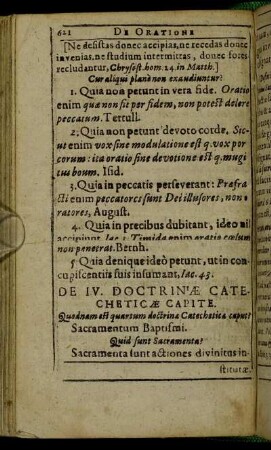 621 DE ORATIONE
[Ne desistas donec accipias, ne recedas donec
invenias, ne studium intermittas, donec fores
recludantur, Chrysost. hom. 24. in Matth.]
Cur aliqui planè non exaudiuntur?
1. Quia non petunt in vera fide. Oratio
enim quæ non sit per fidem, non potest delere
peccatum. Tertull.
2. Quia non petunt devoto corde, Sic
ut enim vox sine modulatione est q. vox por
corum: ita oratio sine devotione est q. mugi
tus boum. Isid.
3. Quia in peccatis perseverant: Præfra
cti enim peccatores sunt Dei illusores, non o
ratores, August.
4. Quia in precibus dubitant, ideo nil
accipiunt. Iac. 1. Timida enim oratio cœlum
non penetrat. Bernh.
5. Quia denique ideò petunt, ut in con
cupiscentiis suis insumant, Iac. 43.
DE IV. DOCTRINÆ CATE-
CHETICÆ CAPITE.
Quodnam est quartum doctrinæ Catecheticæ caput?
Sacramentum Baptismi.
Quid sunt Sacramenta?
Sacramenta sunt actiones divinitus in-
stitutæ.